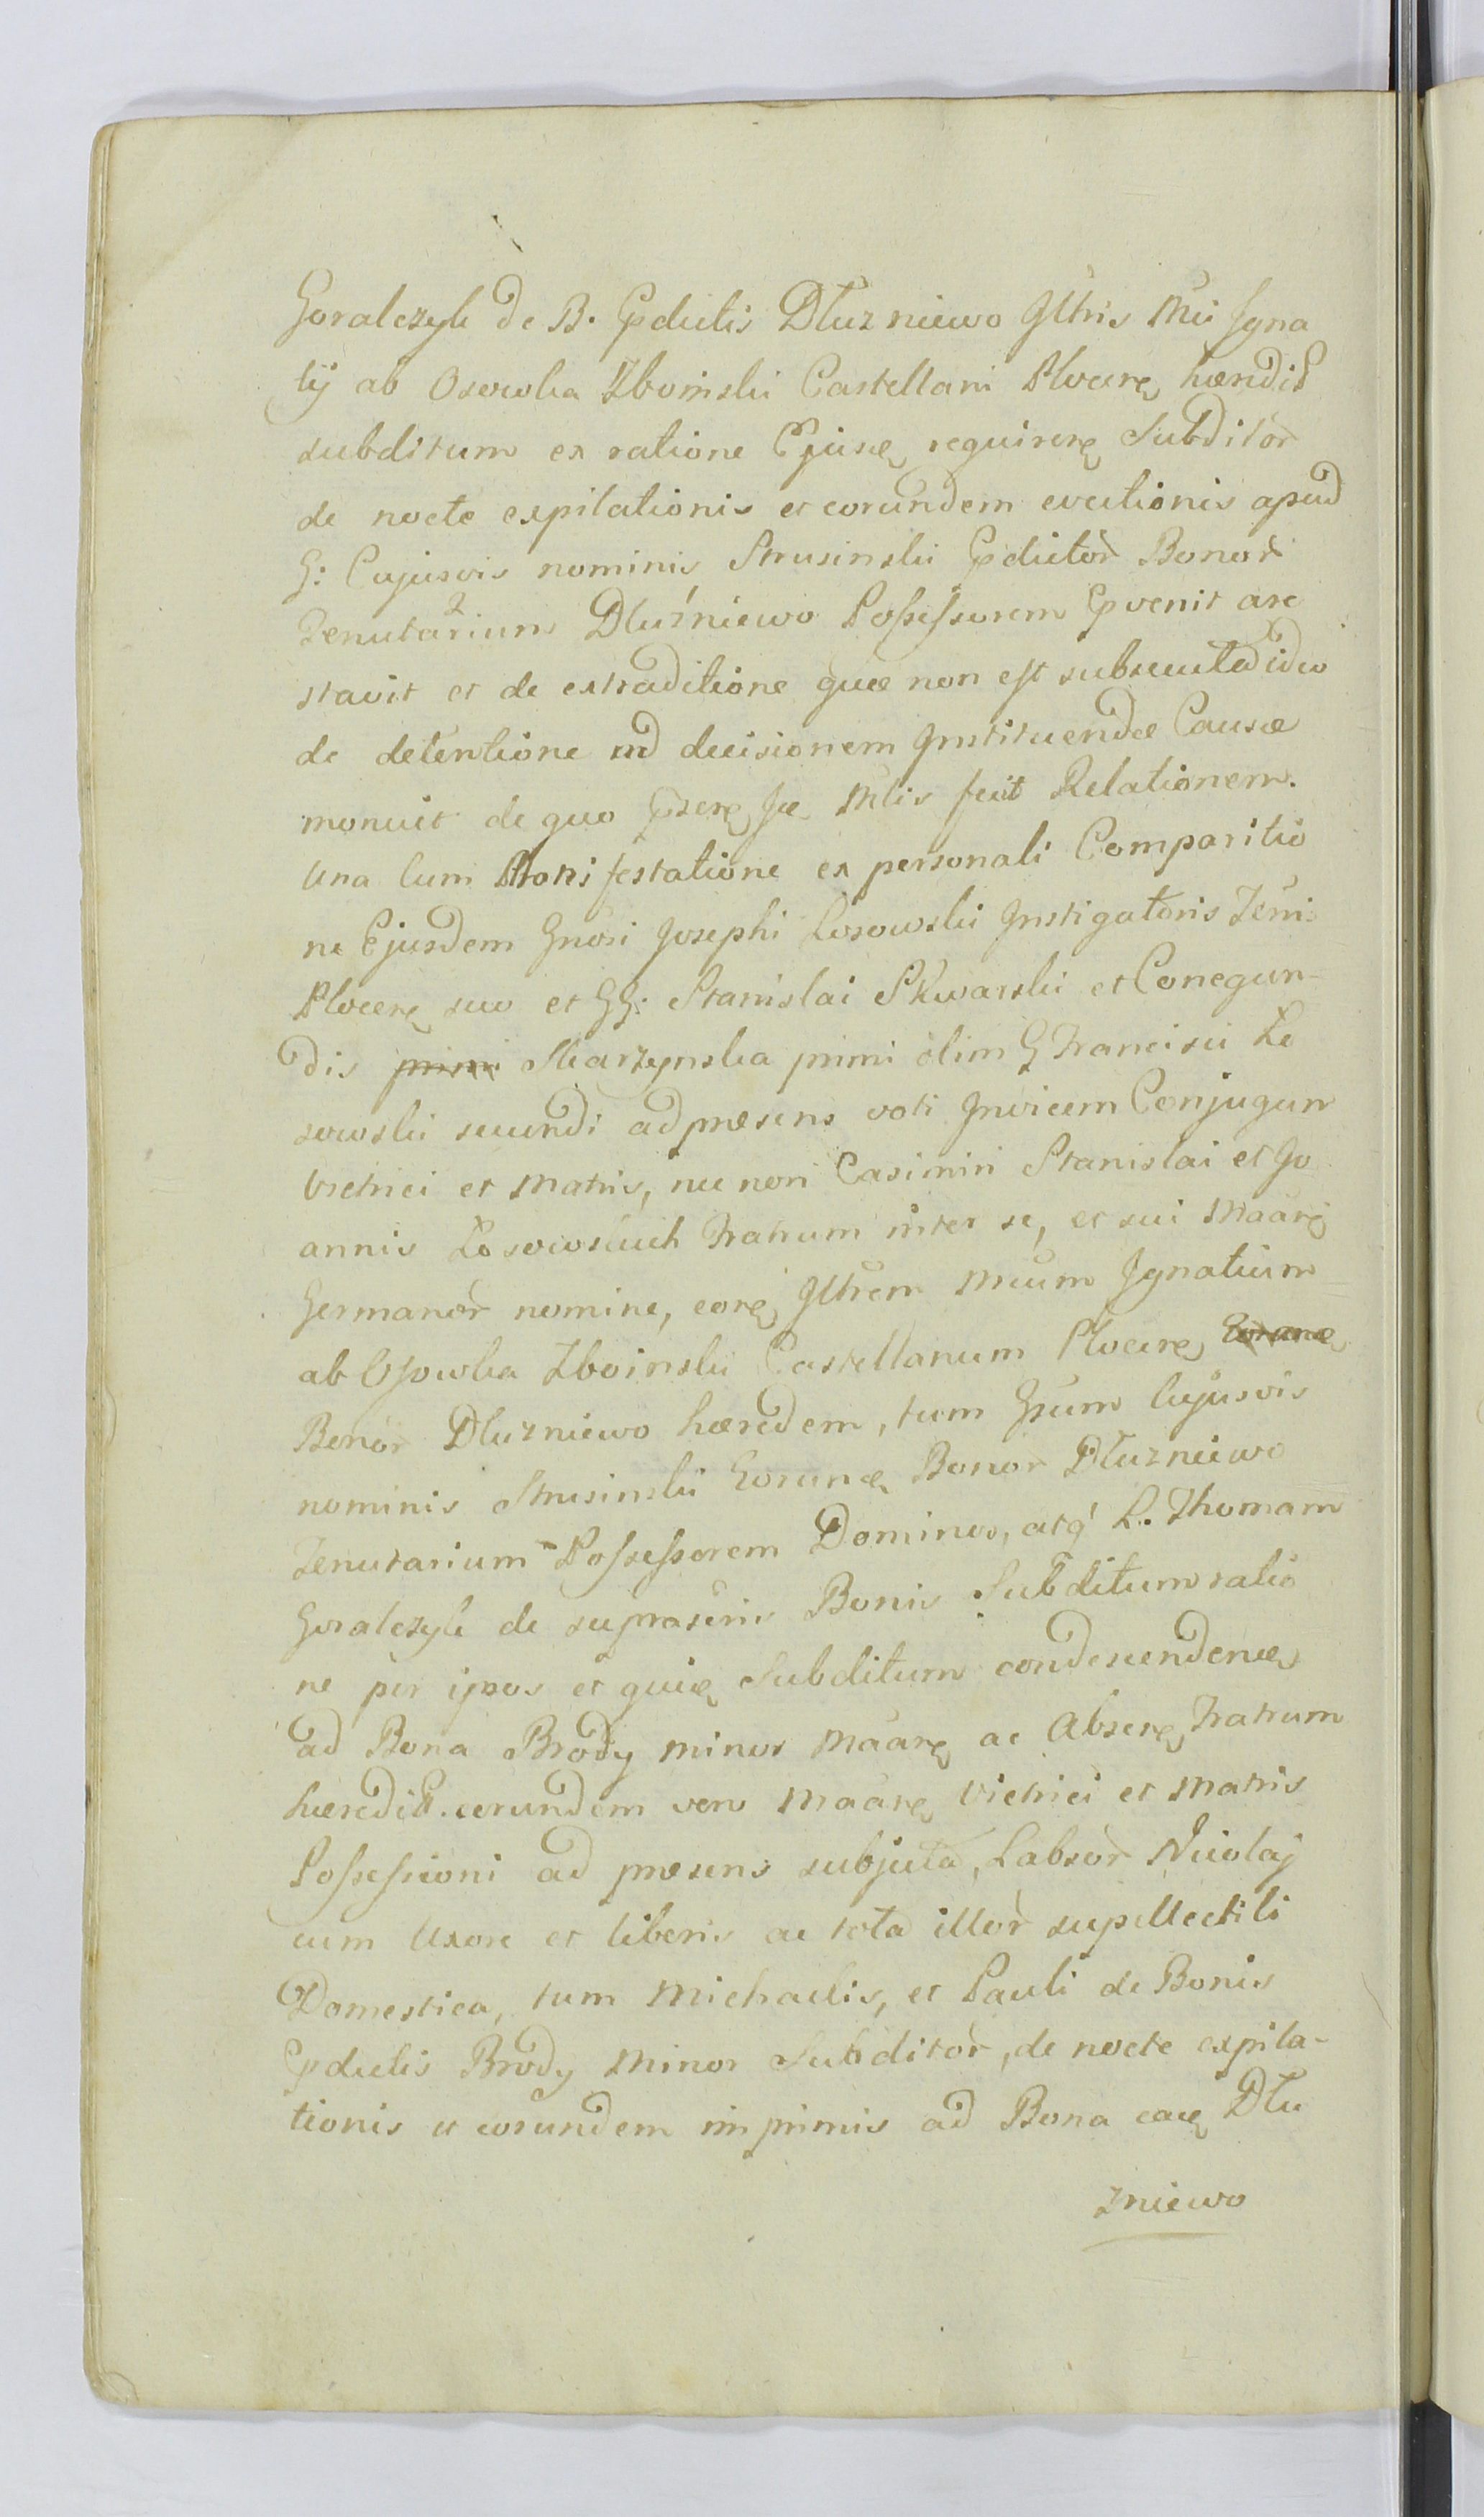 Goralczyk de B. ꝑdictis Dłuzniewo Jllris Mci Jgna
tij ab Osowka Zboinski Castellani Plocen hærdit
subditum ex ratione Ejusd requiren Subditor
de nocte expilationis et eorundem evectionis apud
G: Cujusvis nominis Strusinski ꝑdictor Bonor
Tenutarium Dłuźniewo Possessorem ꝑvenit are
stavit et de extraditione quæ non est subsecuta ideo
de detentione ad decisionem Jnstituendæ Causæ
monuit de quo ꝑsen se Mlis fecit Relationem.
Una cum Manifestatione ex personali Comparitio
ne Ejusdem Gnosi Josephi Losowski Jnstigatoris Terris
Plocen suo et GG: Stanislai Skwarski et Conegun-
dis primi Skarzynska primi olim G Francisci Lo
sowski secundi ad præsens voti Jnvicem Conjugum
Vietrici et Matris, nec non Casimiri Stanislai et Jo
annis Losowskich Fratrum inter se, et sui Maaren
Germanor nomine, coren Jllrem Mcum Jgnatium
ab Osowka Zboinski Castellanum Plocen
Bonor Dluzniewo hæredem, tum Gsum Cujusvis
nominis Strusinski Eorund Bonor Dłuzniewo
Tenutarium Possessorem Dominos, atq' L. Thomam
Goralczyk de suprascris Bonis Subditum ratio
ne per ipsos et Subditum condescenden
ad Bona Brody minor Maaren ac Absen Fratrum
hæredit. eorundem vero Maaren Vietrici et Matris
Possessioni ad præsens subjecta, Labsor Nicolaj
cum Uxore et liberis ac tota illor supellectili
Domestica, tum Michaelis, et Pauli de Bonis
ꝑdictis Brody Minor Subditor, de nocte expila-
tionis et eorundem imprimis ad Bona ead Dłu
zniewo